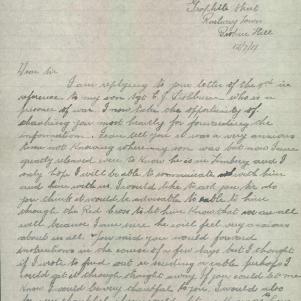 Railway Town
Broken Hill
Dear Sir
I am replying to your letter of the 9th in
reference to my son Sgt F. J. who is a
prisoner of war. I now take the opportunity of
thanking you most heartily for forwarding the
information. I can tell you it was a very anxious
time not knowing where my son was but now I am
greatly relieved were to know he is in Limburg and I
only hope I will be able to communicate with him
and here with us. I would like to ask you Sir do
you think it would be advisable to cable to him
through the Red Cross to let him know that we are all
well because I am sure he will feel very anxious
about us all. You said you would forward
particulars in the course of a few days but I thought
if I wrote to find out in sending cable perhaps I
could get it through straight away. If you could let me
know I would be very thankful to you. I would also